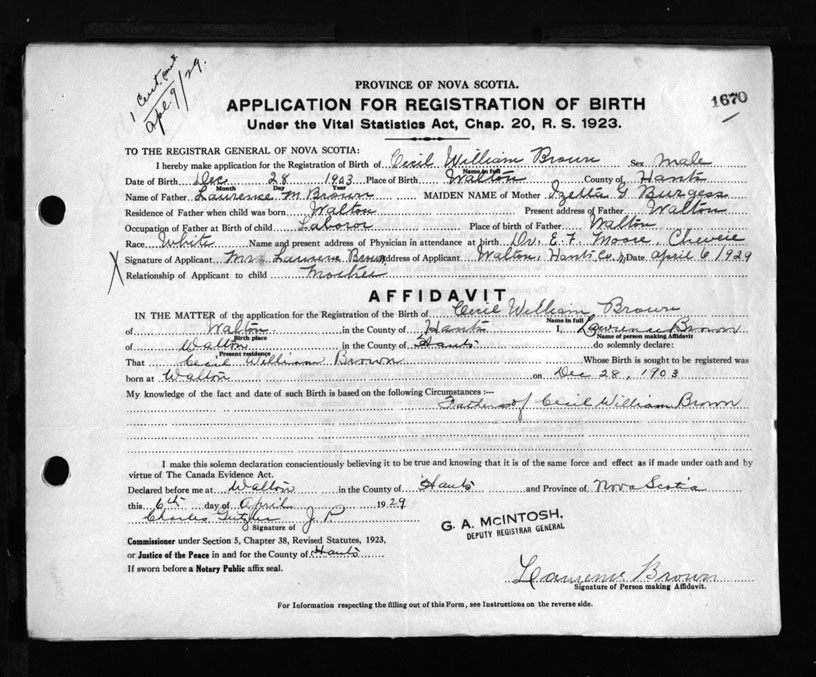 1 Cert. out
Apl. 9/29.
PROVINCE OF NOVA SCOTIA.
APPLICATION FOR REGISTRATION OF BIRTH
1670
Under the Vital Statistics Act, Chap. 20, R. S. 1923.
TO THE REGISTRAR GENERAL OF NOVA SCOTIA:
I hereby make application for the Registration of Birth of Cecil William Brown Sex Male
Name in full
Date of Birth Dec 28 1903 Place of Birth Walton County of Hants
Month Day Year
Name of Father Lawrence M Brown MAIDEN NAME of Mother Izetta G Burgess
Residence of Father when child was born Walton Present address of Father Walton
Occupation of Father at Birth of child Laboror Place of birth of Father Walton
Race White Name and present address of Physician in attendance at birth Dr. E. F. Moore, Cheverie
X Signature of Applicant Mrs Laurence Brown Address of Applicant Walton, Hants Co, Date April 6 1929
Relationship of Applicant to child Mother
AFFIDAVIT
IN THE MATTER of the application for the Registration of the Birth of Cecil William Brown
Name in full
of Walton in the County of Hants I, Lawrence Brown
Birth place Name of person making Affidavit
of Walton in the County of Hants do solemnly declare:
Present residence
That Cecil William Brown Whose Birth is sought to be registered was
born at Walton on Dec 28, 1903
My knowledge of the fact and date of such Birth is based on the following Circumstances :—
Father of Cecil William Brown
I make this solemn declaration conscientiously believing it to be true and knowing that it is of the same force and effect as if made under oath and by
virtue of The Canada Evidence Act.
Declared before me at Walton in the County of Hants and Province of Nova Scotia
this 6th day of April 1929
Charles J P
Signature of
G. A. McINTOSH,
DEPUTY REGISTRAR GENERAL
Commissioner under Section 5, Chapter 38, Revised Statutes, 1923,
or Justice of the Peace in and for the County of Hants
If sworn before a Notary Public affix seal.
Lawrence Brown
Signature of Person making Affidavit.
For Information respecting the filling out of this Form, see Instructions on the reverse side.